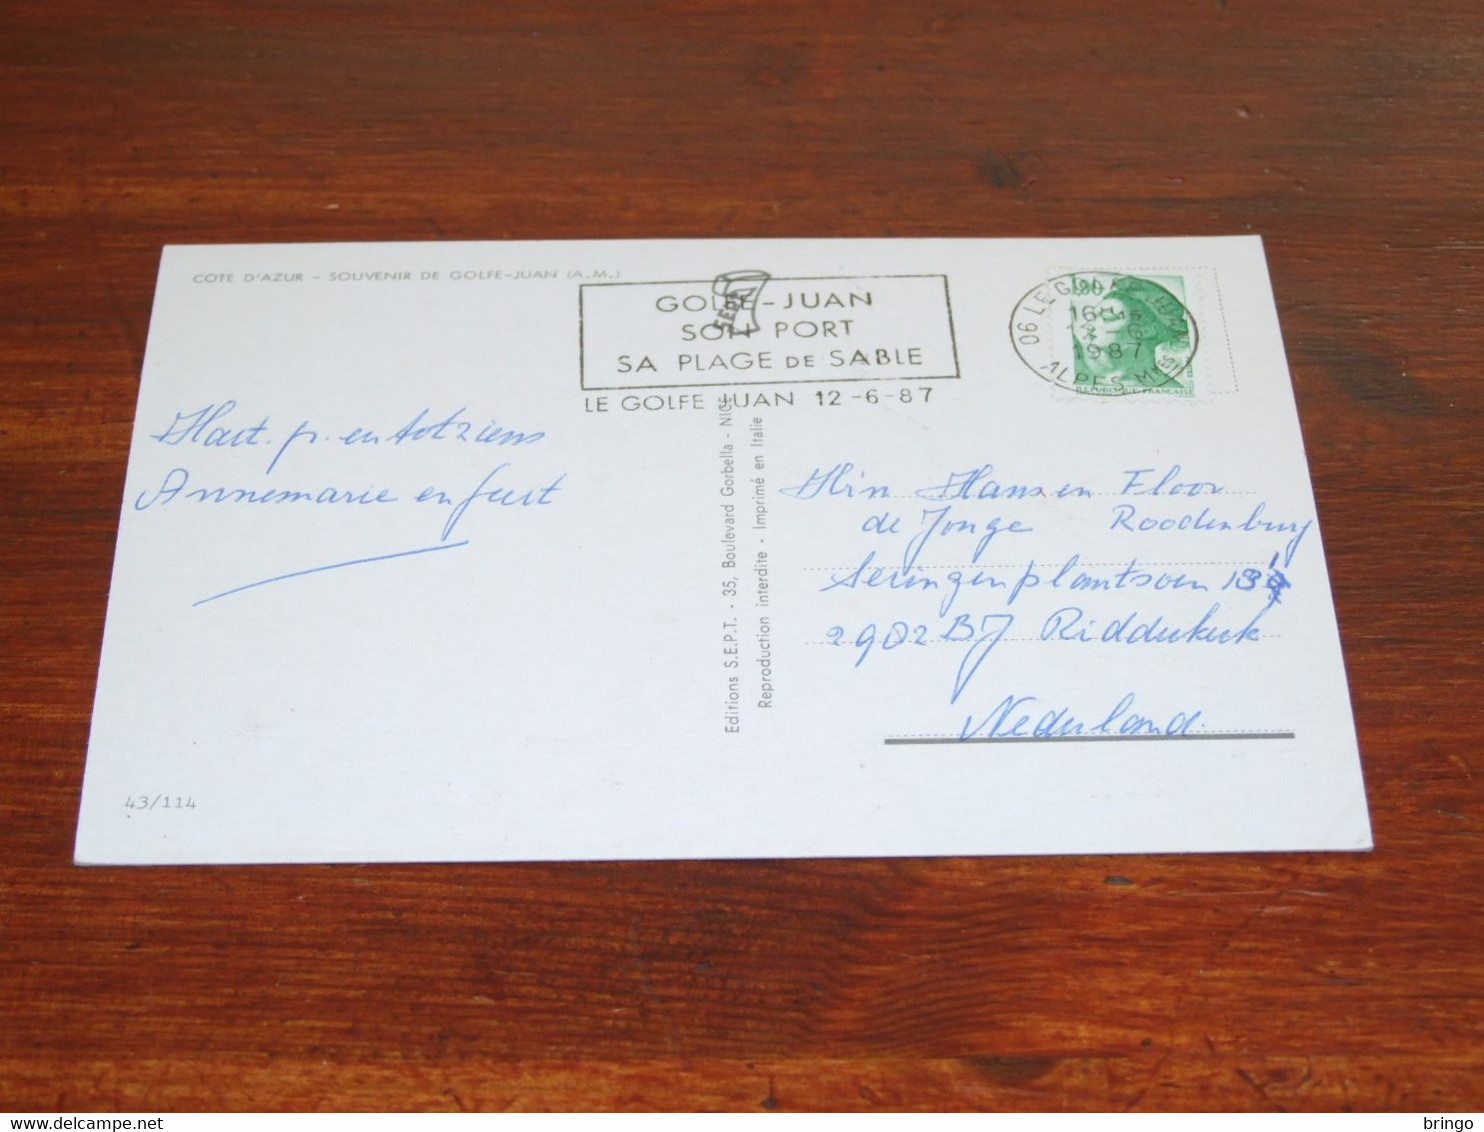 COTE D'AZUR - SOUVENIR DE GOLFE-JUAN (A.M.)
GOLFE-JUAN
SON PORT
SA PLAGE DE SABLE
LE GOLFE JUAN 12-6-87
06 LE GOLFE JUAN
1987
ALPES Mmes
REPUBLIQUE FRANCAISE
Hart. gr. en tot ziens
Annemarie en
Editions S.E.P.T. - 35, Boulevard Gorbella - NICE
Reproduction interdite - Imprimé en Italie
Hansen Floor
de Jonge Roodenburg
Seringenplantsoen
2982 BJ Ridderkerk
Nederland.
43/114
delcampe.net
bringo